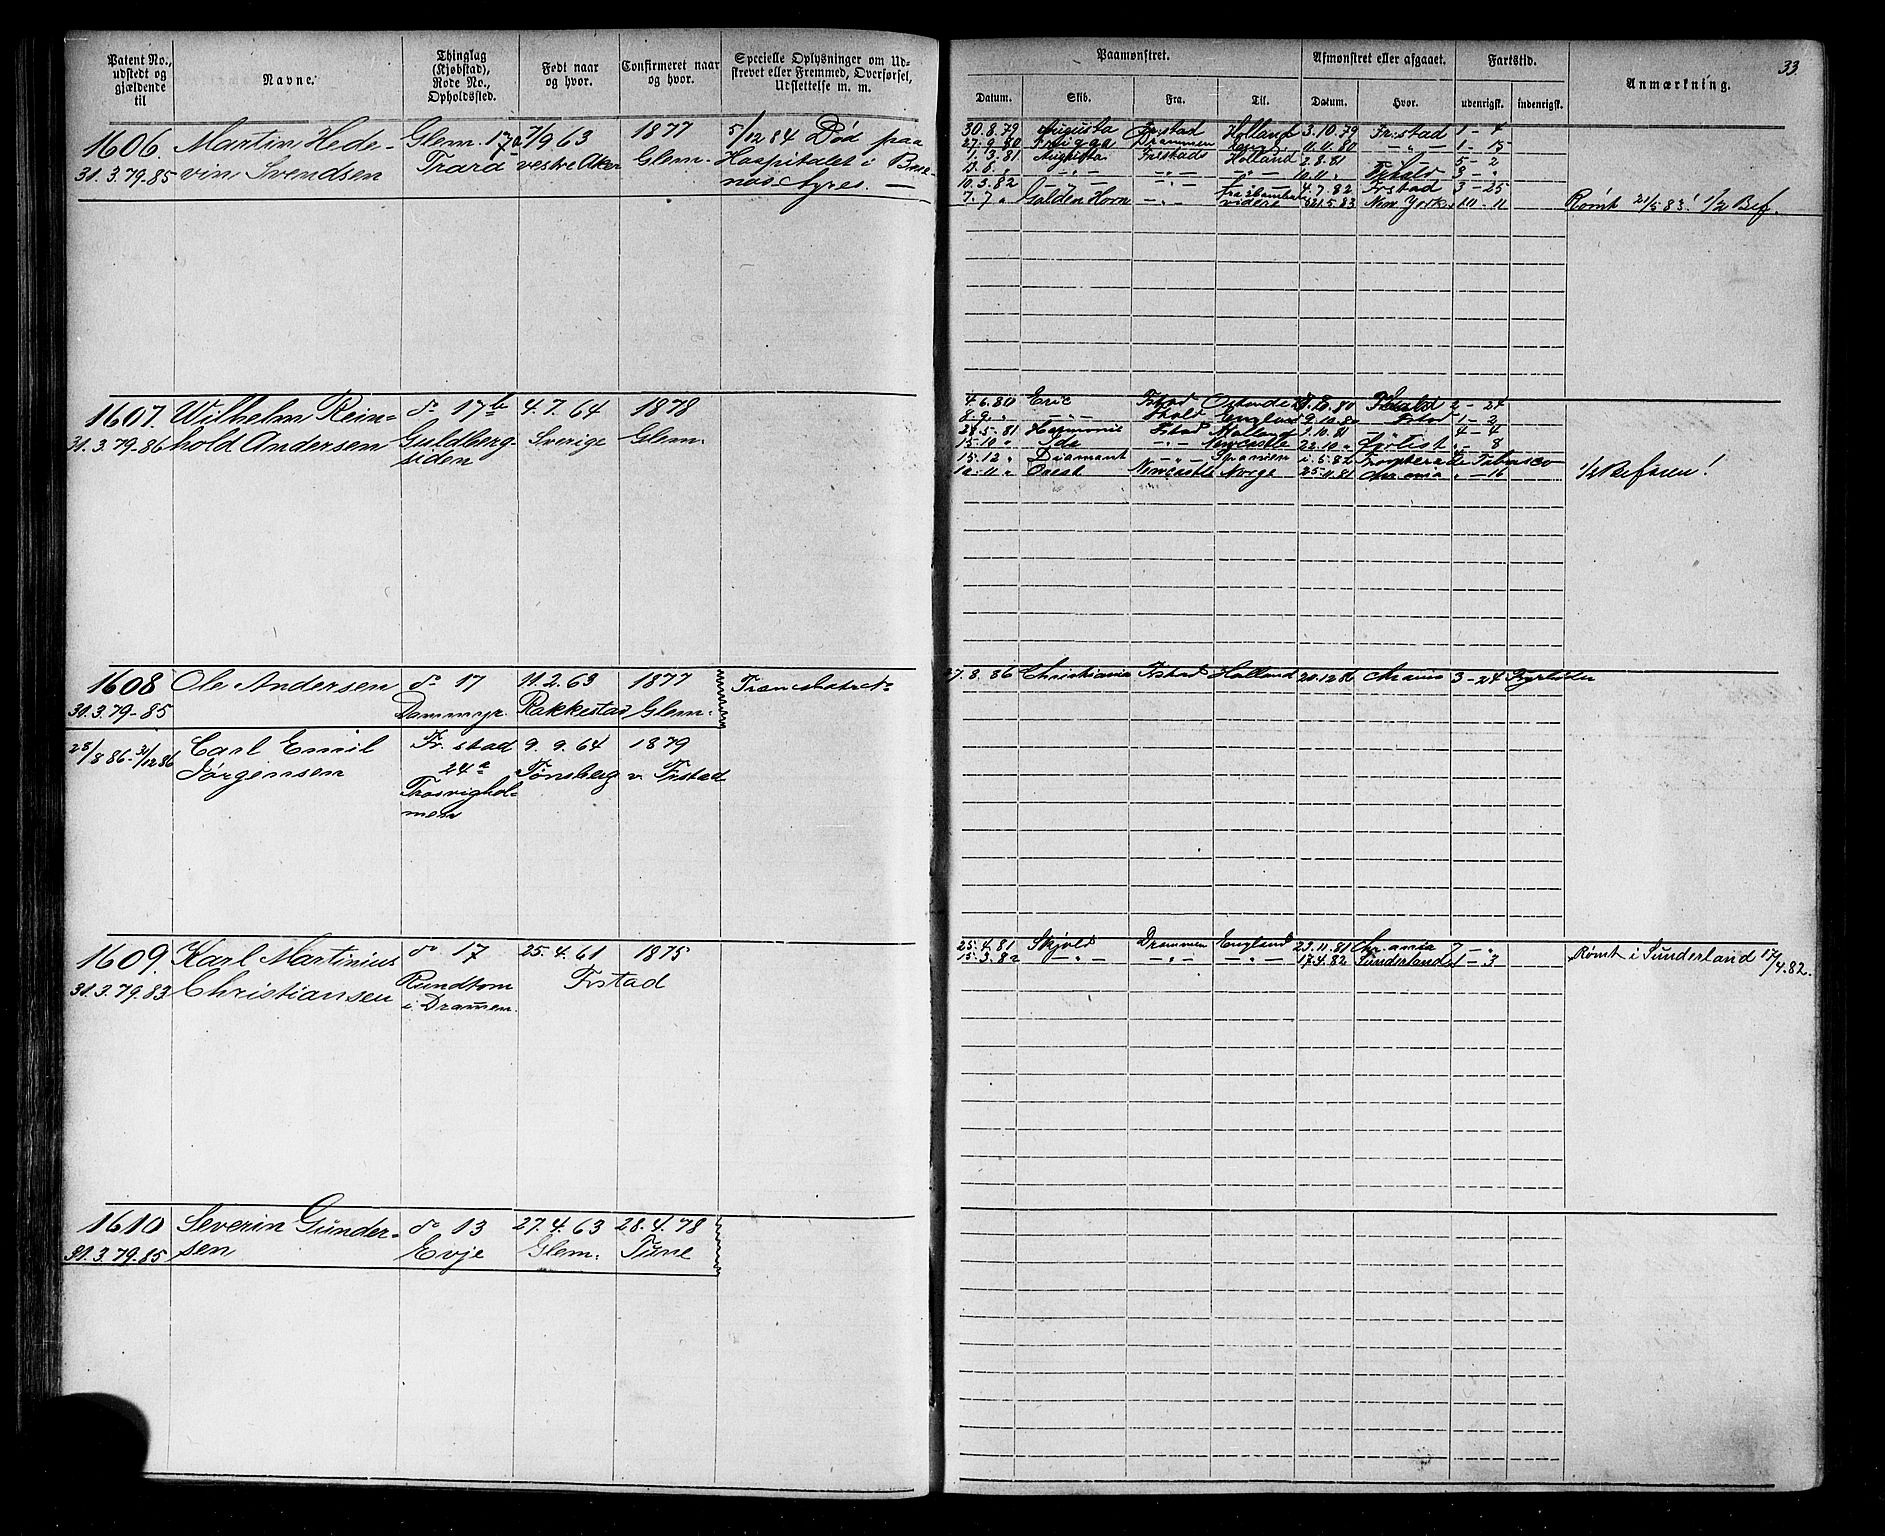 Patent No., udstedt og gjældende til
Navne.
Thinglag (Kjøbstad), Rode No., Opholdssted.
Født naar og hvor.
Confirmeret naar og hvor.
Specielle Oplysninger om Udstrevet eller Fremmed, Overførsel, Udslettelse m. m.
Paamønstret.
Afmønstret eller afgaaet.
Fartstid.
Anmærkning.
33.
Datum. Skib. Fra. Til. Datum. Hvor. udenrigsk. indenrigsk.
1606. Martin Hede- Glem. 17a 7/9 63 1877 5/12 84 Død paa
31.3.79.85 vin Svendsen Trara vestre Aker Glem. Hospitalet i Bue-
nos Ayres. —
30.8.79 Augusta Fr.stad Holland 3.10.79 Fr.stad 1 - 4
27.9.80 Frigga Drammen 11.11.80 — „ — 1 - 15
1.3.81 Augusta Fr.stad Holland 2.8.81 5 - 2
10.3.82 4.7.82 Frstad 3 - 25
7.7 „ Golden Horn — „ — videre 21.5.83 New York 10 - 11 Rømt 21/5 83! 1/2 Bef.
1607. Wilhelm Rein- do 17b 4.7.64 1878
31.3.79-86 hold Andersen Guldberg- Sverige Glem.
siden
4.6.80 Eric Fstad Ostende 80 2 - 24
8.9. „ — „ — England 9.10.80 Fstad 1 - 2
24.5.81 Harmonie Fstad 4 - 4
15.10 „ Ida — „ — Newcastle 22.10 „ „ - 8
15.12 „ Diamant — „ — Spanien Tabasco
12.11 „ Newcastle Norge 25.11.81 Chr.ania „ - 16 1/1 Befaren!
1608 Ole Andersen do 17 11.2.63 1877
31.3.79-85 Dammyr. Rakkestad Glem.
27.8.86 Christiania Fstad Holland 20.12.86 Chr.ania 3 - 24
25/8 86-31/12 86 Carl Emil Fr.stad 9.9.64 1879
Jørgensen 24a Tønsberg v. Frstad
Trosvighol-
men
1609. Karl Martinius do 17 25.4.61 1875
31.3.79.83 Christiansen Rundtom Frstad
i Drammen.
25.4.81 Skjold Drammen England 23.11.81 Chr.ania 7 - „
15.3.82 — „ — — „ — — „ — 17.4.82 Sunderland 1 - 3 Rømt i Sunderland 17/4.82.
1610 Severin Gunder- do 13 27.4.63 28.4.78
31.3.79.85 sen Evje Glem. Tune